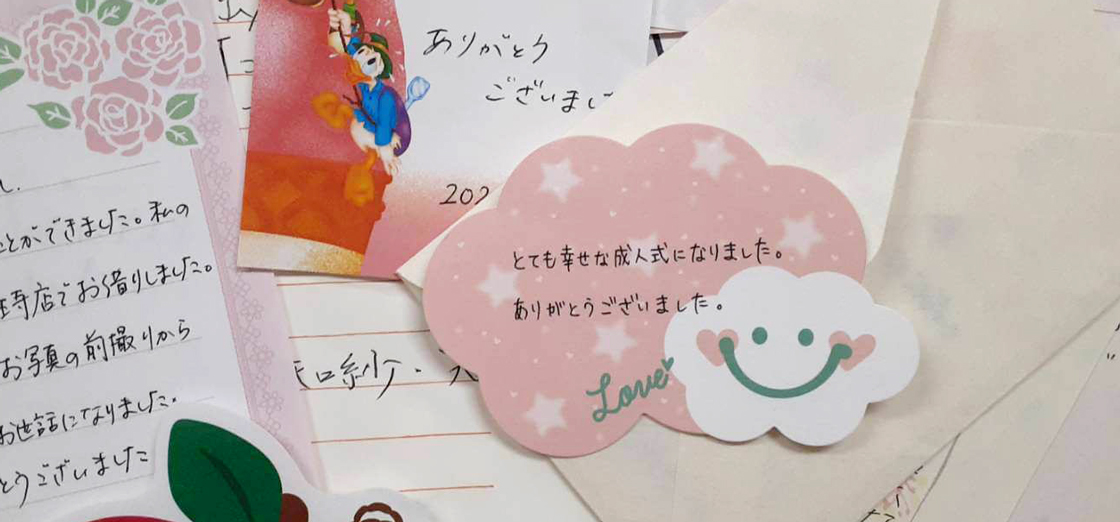 し.
とができました。私の
寺店でお借りしました。
お写真の前撮りから
お世話になりました。
とうございました
ありがとう
ございまし
202
とても幸せな成人式になりました。
ありがとうございました。
Love
口紗・